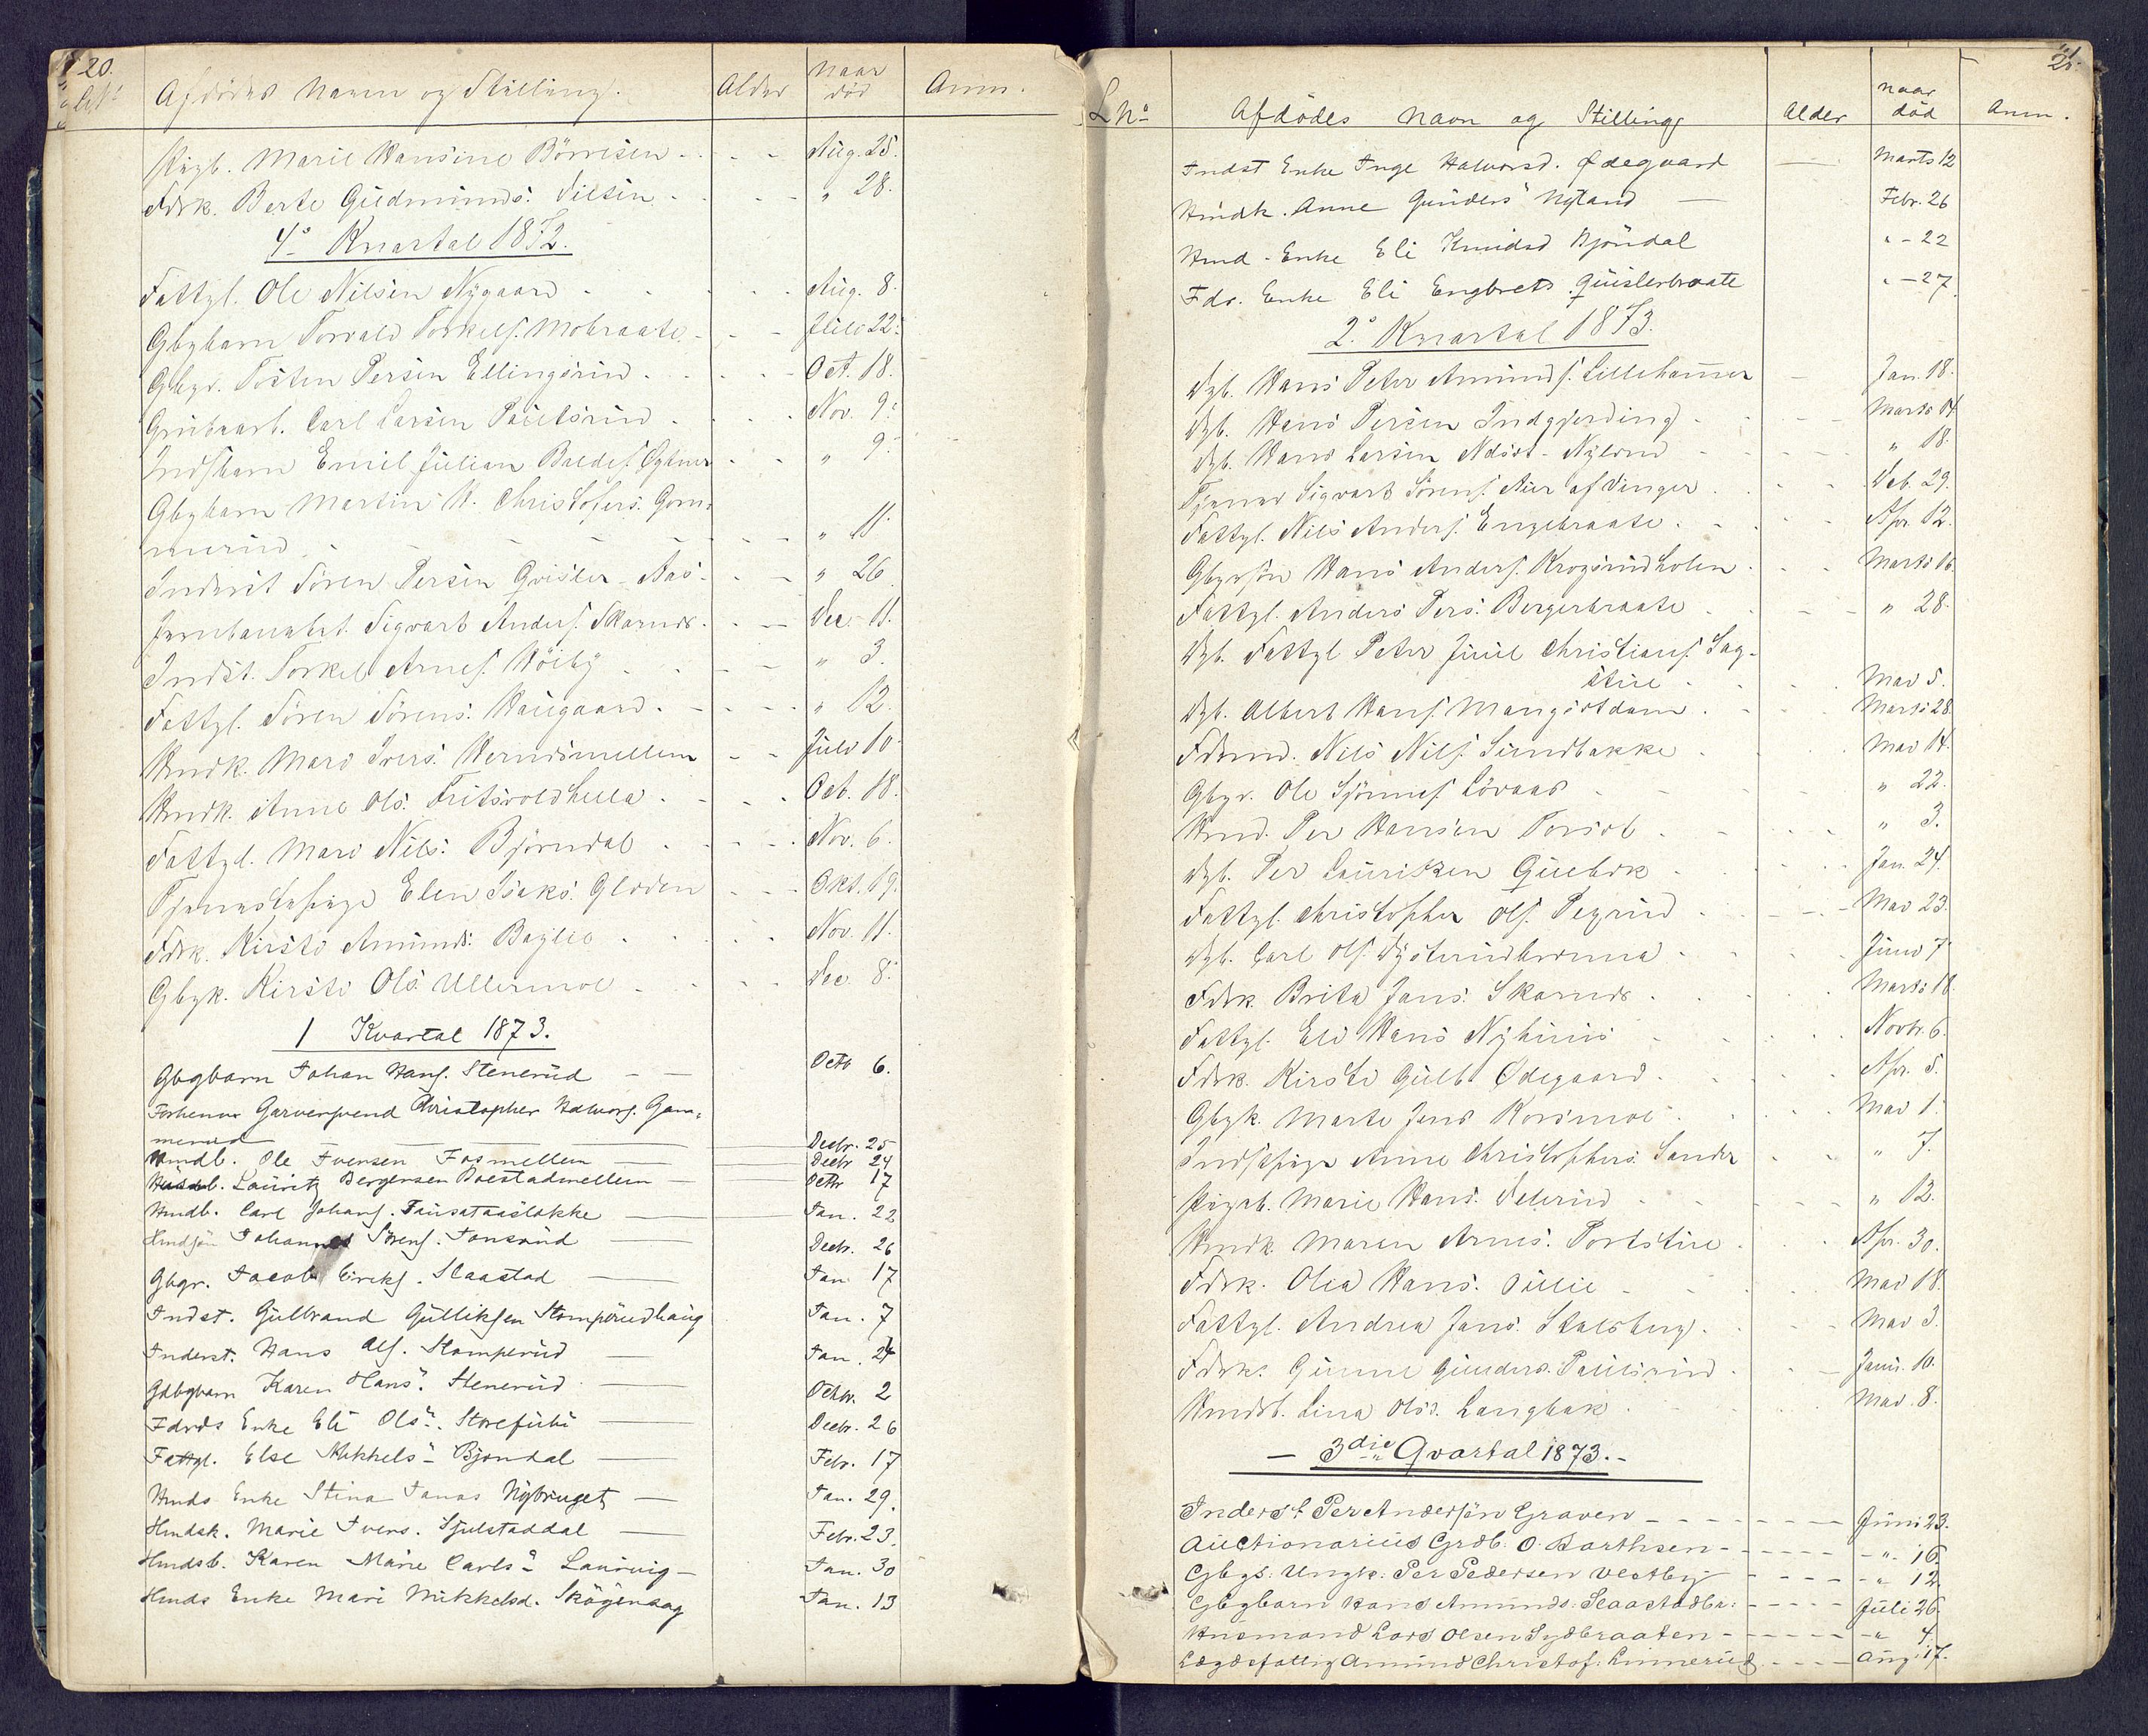 20.
Afdödes Navn og Stilling.
Alder
Naar död
Anm.
Pigb. Marie Hansine Börresen - - - Aug. 25.
Fdrk. Berte Gudmunds: - - - " 28.
4º Kvartal 1872.
Fattgl. Ole Nilsen Nygaard - - - Aug. 8.
Gbgbarn Torvald Torkelf. Mobraate - - Juli 22.
Gbgr. Tosten Persen Ellingsrud - - - Oct. 18.
Grubearb. Carl Larsen Paulsrud - - - Nov. 9.
Indstbarn Emil Julian Baldef. - - " 9.
Gbgbarn Martin H. Christofers: Gom-
merud - - - " 11.
Inderst Sören Persen Qvister-Aas - - " 26
Jernbanearb. Sigvart Andersf. Skarnes - - Dec. 11.
Indst. Torkel Arnef. Höiby - - " 3.
Fattgl. Sören Sörens: Haugaard - - - " 12.
Hmdk. Mari Ivers: Herndsmellem - - Juli 10.
Hmdk. Anne Ols: - - - Oct. 18.
Fattgl. Mari Nils: Björndal - - - Nov. 6.
Elen Isaks: Gloden - - - Okt. 19.
Fdrk. Kirsti Amunds: - - - Nov. 11.
Gbgk. Kirsti Ols: Ullernmoe - - - Dec. 8.
1 Kvartal 1873.
Gbgbarn Johan Hansf. Stenerud — — Octb 6.
Forhenv. Garversvend Christopher Halvorsf. Gom-
merud — — Decbr. 25
Hmdb. Ole Iversen Fosmellem — Decbr 24
Lauritz Bergersen — Octbr 17
Hmdb. Carl Johansf. — Jan. 22
Hmdsön Johannes Sörensf. Tonsrud — Decbr. 26
Gbgr. Jacob Eireksf. Slaastad — Jan 17
Indst. Gulbrand Gulliksen Stomperudhaug Jan. 7
Inderst. Hans Olsf. Stomperud — Jan. 24
Gdbgbarn Karen Hans: Stenerud — Octbr. 2
Fdrds Enke Eli Ols: — Decbr. 26
Fattgl. Else Mikkels: Bjöndal — Febr. 17
Hmds Enke Stina Jonas Nybruget — Jan. 29.
Hmdsk. Marie Ivers. Sjulstaddal — Febr. 23.
Hmdsb. Karen Marie Carls: — Jan. 30
Hmds Enke Mari Mikkelsd. Jan. 13
21.
L Nº
Afdödes Navn og Stilling
Alder
naar död
Anm.
Indst Enke Inge Halvorsd. Ödegaard — Marts 12
Hmdk. Anne Gunders: Nyland — Febr. 26
Hmd. Enke Eli Knudsd Bjöndal " - 22
Fdr. Enke Eli Engbrets. Quislerbraate " - 27.
2º Kvartal 1873.
Dgb. Hans Peter Amundsf. Lillehammer - Jan. 18.
Dgb. Hans Persen Indgjerding - - Marts 14.
Dgb. Hans Larsen - - " 18.
Tjener Sigvart Sörensf. Aur af Vinger - - Feb. 29.
Fattgl. Nils Andersf. Engebraate - - - Apr. 12.
Gbgrsön Hans Andersf. Krogsrudholen - - Marts 16.
Fattgl. Anders Pers: Bergerbraate - - " 28.
Dgb. Fattgl Peter Juul Christiansf. Sag-
stue - - Mai 5.
Dgb. Albert Hansf. Mangsetdam - - Marts 28.
Fdrmd. Nils Nilsf. Sundbakke - - Mai 14.
Gbgr. Ole - - " 22.
Hmd. Per Hansen - - " 3.
Dgb. Per Lauritzen - - Jan. 24.
Fattgl. Christopher Olsf. - - Mai 23.
Dgb. Carl Olsf. - - Juni 7
Fdrk Brita Jens: Skarnes - - Marts 18.
Fattgl. Eli Hans: Nyhuus - - Novbr. 6.
Fdrk. Kirsti Gulb: Ödegaard - - Apr. 5.
Gbgk. Marte Jens: Korsmoe - - Mai 1.
Anne Christophers: Sander - - " 7.
Pigeb. Marie Hans: - - " 12.
Hmdk. Maren Arnes: - - Apr. 30.
Fdrk. Olea Hans: - - Mai 18.
Fattgl. Andrea Jens: Skulsberg - - Mai 3.
Fdrk. Gunne Gunders: Paulsrud - - Juni 10.
Hmdb. Lina Ols: Langbak - - Mai 8.
- 3die Qvartal 1873. -
Inderst Per Andersön Graven - - - Juni 23.
Auctionarius Grdb. O. Barthsen - - - " 16.
Gbgs: Ungk: Per Pedersen Vestby - - - " 12
Gbgbarn Hans Amunds: - - - Juli 26.
Husmand Lars Olsen Sydbraaten - - - " 4.
Lægdsfattig Amund Christof: Linnerud - - - Aug. 17.